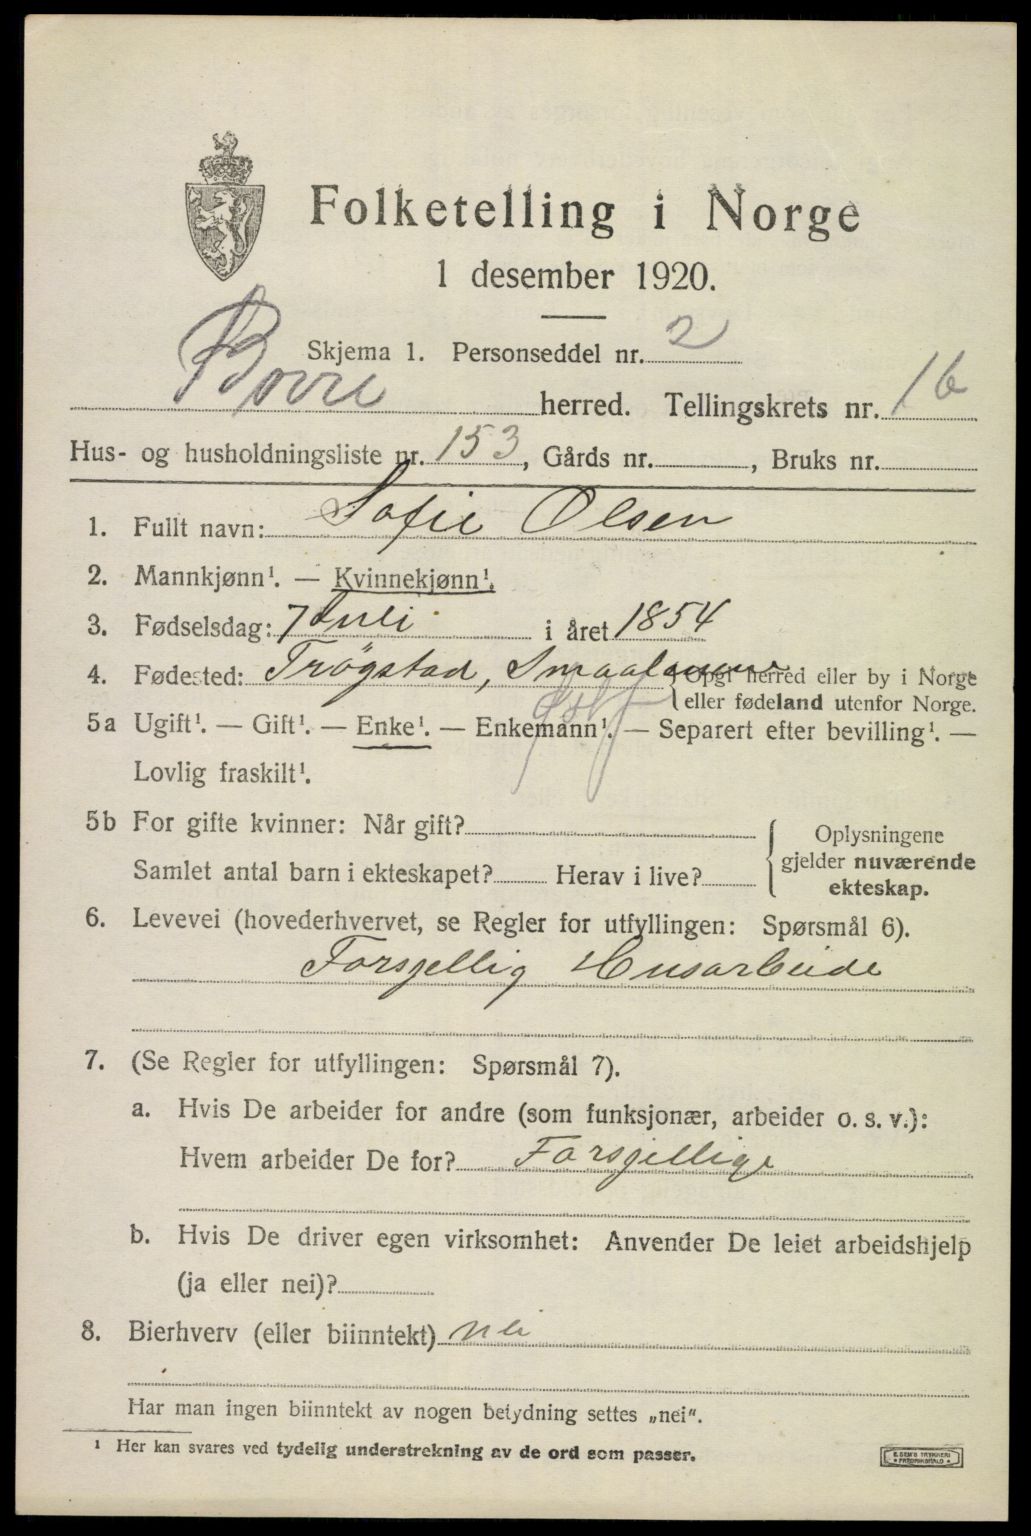 Folketelling i Norge
1 desember 1920.
Skjema 1. Personseddel nr. 2
Borre herred. Tellingskrets nr. 16
Hus- og husholdningsliste nr. 153, Gårds nr. , Bruks nr.
1. Fullt navn: Sofie Olsen
2. Mannkjønn¹. — Kvinnekjønn¹.
3. Fødselsdag: 7 Juli i året 1854
4. Fødested: Trøgstad, Smaalenene { Opgi herred eller by i Norge
eller fødeland utenfor Norge.
Østf
5a Ugift¹. — Gift¹. — Enke¹. — Enkemann¹. — Separert efter bevilling¹. —
Lovlig fraskilt¹.
5b For gifte kvinner: Når gift?
Samlet antal barn i ekteskapet? Herav i live?
Oplysningene
gjelder nuværende
ekteskap.
6. Levevei (hovederhvervet, se Regler for utfyllingen: Spørsmål 6).
Forsjellig Husarbeide
7. (Se Regler for utfyllingen: Spørsmål 7).
a. Hvis De arbeider for andre (som funksjonær, arbeider o. s. v.):
Hvem arbeider De for? Forsjellige
b. Hvis De driver egen virksomhet: Anvender De leiet arbeidshjelp
(ja eller nei)?
8. Bierhverv (eller biinntekt) nei
Har man ingen biinntekt av nogen betydning settes „nei".
¹ Her kan svares ved tydelig understrekning av de ord som passer.
E. SEM'S TRYKKERI
FREDRIKSHALD